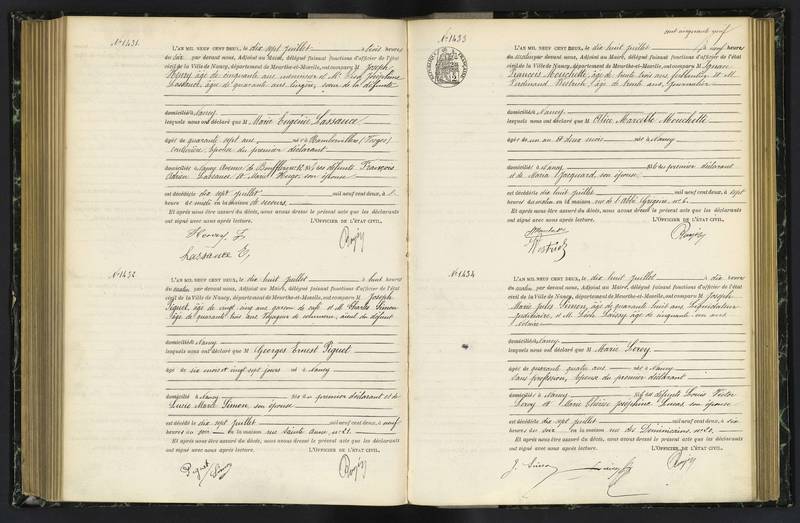 N° 1431
L'AN MIL NEUF CENT DEUX, le dix sept juillet à trois heures
du soir par devant nous, Adjoint au Maire, délégué faisant fonctions d'officier de l'état
civil de la Ville de Nancy, département de Meurthe-et-Moselle, ont comparu M Joseph
âgé de cinquante ans et Mme Joséphine
Lassauce, âgée de quarante ans, lingère, sœur de la défunte
domiciliés à Nancy
lesquels nous ont déclaré que M Marie Eugénie Lassauce
âgée de quarante sept ans, née à Rambervillers (Vosges)
couturière, épouse du premier déclarant
domiciliée à Nancy Avenue de Boufflers, 12, fille des défunts François
Lassauce et Marie son épouse
est décédée dix sept juillet mil neuf cent deux, à
heure de midi en la maison de secours.
Et après nous être assuré du décès, nous avons dressé le présent acte que les déclarants
ont signé avec nous après lecture. L'OFFICIER DE L'ÉTAT CIVIL,
Lassauce E,
N° 1432
L'AN MIL NEUF CENT DEUX, le dix huit juillet à huit heures
du matin par devant nous, Adjoint au Maire, délégué faisant fonctions d'officier de l'état
civil de la Ville de Nancy, département de Meurthe-et-Moselle, ont comparu M Joseph
Piguet, âgé de vingt cinq ans garçon de café et M Charles Simon
âgé de quarante trois ans Voyageur de commerce, aïeul du défunt
domiciliés à Nancy
lesquels nous ont déclaré que M Georges Ernest Piguet
âgé de six mois et vingt sept jours né à Nancy
domicilié à Nancy fils du premier déclarant et de
Marie Simon, son épouse
est décédé le dix sept juillet mil neuf cent deux, à neuf
heures du soir en la maison rue Sainte Anne, n° 21
Et après nous être assuré du décès, nous avons dressé le présent acte que les déclarants
ont signé avec nous après lecture. L'OFFICIER DE L'ÉTAT CIVIL,
Piguet Simon
cent cinquante neuf
N° 1433
L'AN MIL NEUF CENT DEUX, le dix huit juillet à neuf heures
du matin par devant nous, Adjoint au Maire, délégué faisant fonctions d'officier de l'état
civil de la Ville de Nancy, département de Meurthe-et-Moselle, ont comparu M Ignace
François Mouchette, âgé de trente trois ans, ferblantier et M
Ferdinand âgé de trente ans, Journalier
domiciliés à Nancy
lesquels nous ont déclaré que M Alice Marcelle Mouchette
âgée de un an et deux mois née à Nancy
domiciliée à Nancy fille du premier déclarant
et de Maria Jacquard, son épouse
est décédée dix huit juillet mil neuf cent deux, à sept
heures du matin en la maison rue de l'abbé Grégoire n° 6.
Et après nous être assuré du décès, nous avons dressé le présent acte que les déclarants
ont signé avec nous après lecture. L'OFFICIER DE L'ÉTAT CIVIL,
N° 1434
L'AN MIL NEUF CENT DEUX, le dix huit juillet à dix heures
du matin par devant nous, Adjoint au Maire, délégué faisant fonctions d'officier de l'état
civil de la Ville de Nancy, département de Meurthe-et-Moselle, ont comparu M Joseph
Marie Jules Simon, âgé de quarante huit ans Liquidateur
judiciaire, et M. âgé de cinquante un ans
domiciliés à Nancy
lesquels nous ont déclaré que M Marie Leroy
âgée de quarante quatre ans née à Nancy
sans profession, épouse du premier déclarant
domiciliée à Nancy fille des défunts Louis Victor
Leroy et Marie Thérèse Joséphine Lucas, son épouse
est décédée dix sept juillet mil neuf cent deux, à six
heures du soir en la maison rue des Dominicains, n° 20.
Et après nous être assuré du décès, nous avons dressé le présent acte que les déclarants
ont signé avec nous après lecture. L'OFFICIER DE L'ÉTAT CIVIL,
J. Simon